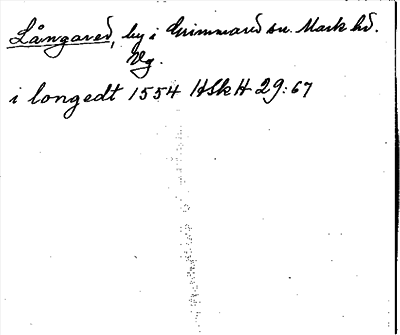 Långared, by i Grimmared sn. Mark hd.
Vg.
i longedt 1554 HSkH 29:67